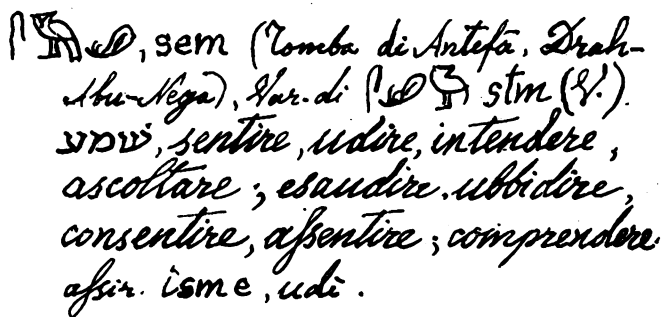 𓋴𓅓𓄔, sem (Tomba di Antefà, Drah-
Abu-Negà), Var. di 𓋴𓄔𓅓 stm (V.).
שׁמע, sentire, udire, intendere,
ascoltare; esaudire, ubbidire,
consentire, assentire; comprendere.
assir. isme, udì.